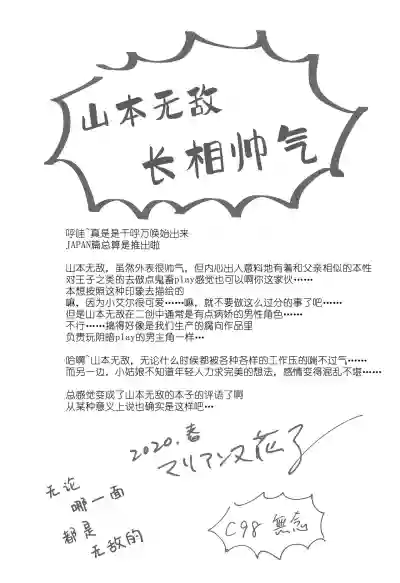 山本无敌
长相帅气
呼哇~真是是千呼万唤始出来
JAPAN篇总算是推出啦
山本无敌，虽然外表很帅气，但内心出人意料地有着和父亲相似的本性
对王子之类的去做点鬼畜play感觉也可以啊你这家伙……
本想按照这种印象去描绘的
嘛，因为小艾尔很可爱……嘛，就不要做这么过分的事了吧……
但是山本无敌在二创中通常是有点病娇的男性角色……
不行……搞得好像是我们生产的腐向作品里
负责玩阴暗play的男主角一样…
哈啊~山本无敌，无论什么时候都被各种各样的工作压的喘不过气……
而另一边，小姑娘不知道年轻人力求完美的想法，感情变得混乱不堪……
总感觉变成了山本无敌的本子的评语了啊
从某种意义上说也确实是这样吧…
2020.春
マリアンヌ花子
无论
哪一面
都是
无敌的
C98 無念